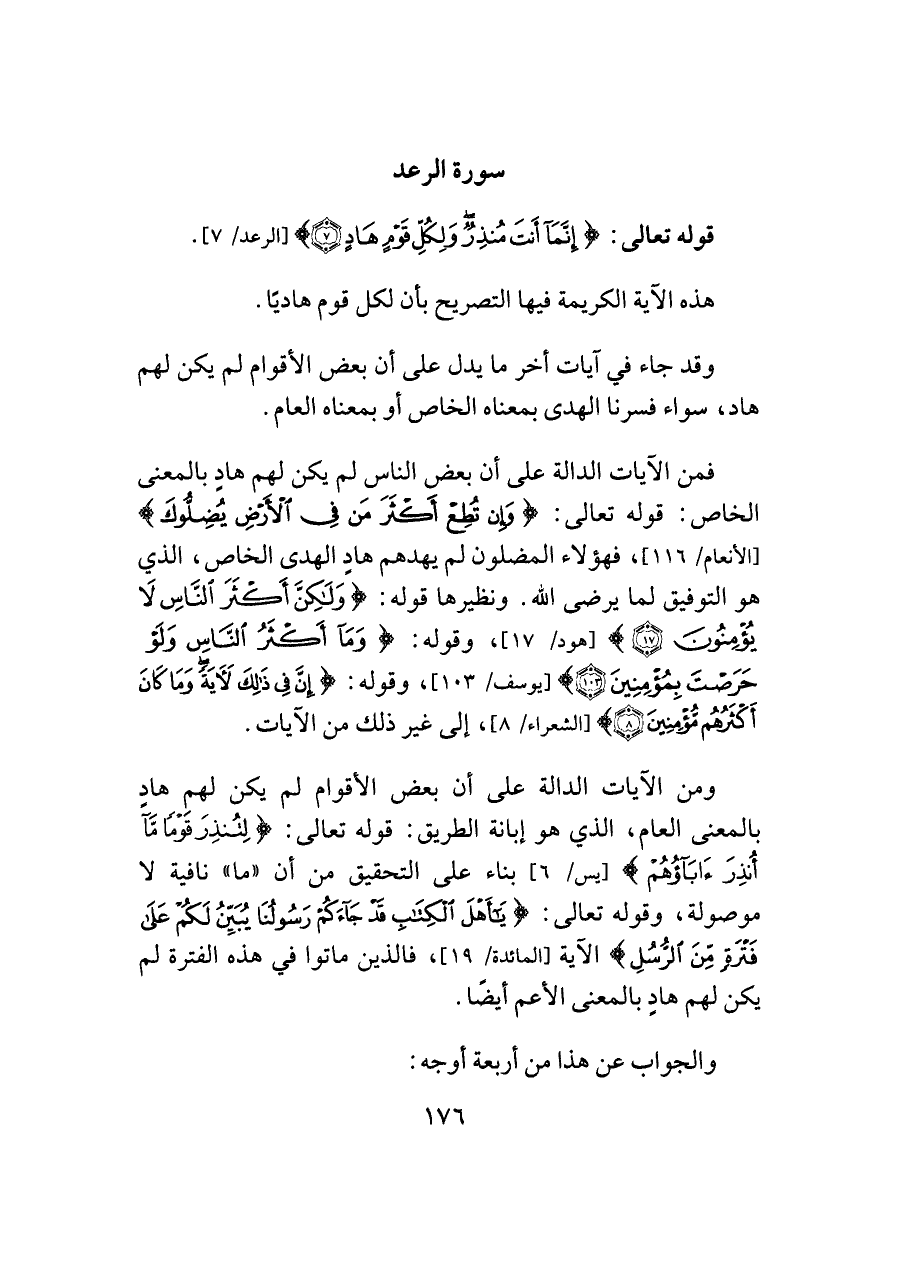 سورة الرعد
قوله تعالى: ﴿ إِنَّمَآ أَنتَ مُنذِرٌۖ وَلِكُلِّ قَوْمٍ هَادٍ ۝٧﴾ [الرعد/ ٧].
هذه الآية الكريمة فيها التصريح بأن لكل قوم هاديًا.
وقد جاء في آيات أخر ما يدل على أن بعض الأقوام لم يكن لهم
هاد، سواء فسرنا الهدى بمعناه الخاص أو بمعناه العام.
فمن الآيات الدالة على أن بعض الناس لم يكن لهم هادٍ بالمعنى
الخاص: قوله تعالى: ﴿ وَإِن تُطِعْ أَكْثَرَ مَن فِى ٱلْأَرْضِ يُضِلُّوكَ ﴾
[الأنعام/ ١١٦]، فهؤلاء المضلون لم يهدهم هادٍ الهدى الخاص، الذي
هو التوفيق لما يرضى الله. ونظيرها قوله: ﴿ وَلَٰكِنَّ أَكْثَرَ ٱلنَّاسِ لَا
يُؤْمِنُونَ ۝١٧ ﴾ [هود/ ١٧]، وقوله: ﴿ وَمَآ أَكْثَرُ ٱلنَّاسِ وَلَوْ
حَرَصْتَ بِمُؤْمِنِينَ ۝١٠٣﴾ [يوسف/ ١٠٣]، وقوله: ﴿ إِنَّ فِى ذَٰلِكَ لَءَايَةًۖ وَمَا كَانَ
أَكْثَرُهُم مُّؤْمِنِينَ ۝٨﴾ [الشعراء/ ٨]، إلى غير ذلك من الآيات.
ومن الآيات الدالة على أن بعض الأقوام لم يكن لهم هادٍ
بالمعنى العام، الذي هو إبانة الطريق: قوله تعالى: ﴿ لِتُنذِرَ قَوْمًا مَّآ
أُنذِرَ ءَابَآؤُهُمْ ﴾ [يس/ ٦] بناء على التحقيق من أن «ما» نافية لا
موصولة، وقوله تعالى: ﴿ يَٰٓأَهْلَ ٱلْكِتَٰبِ قَدْ جَآءَكُمْ رَسُولُنَا يُبَيِّنُ لَكُمْ عَلَىٰ
فَتْرَةٍ مِّنَ ٱلرُّسُلِ ﴾ الآية [المائدة/ ١٩]، فالذين ماتوا في هذه الفترة لم
يكن لهم هادٍ بالمعنى الأعم أيضًا.
والجواب عن هذا من أربعة أوجه:
١٧٦